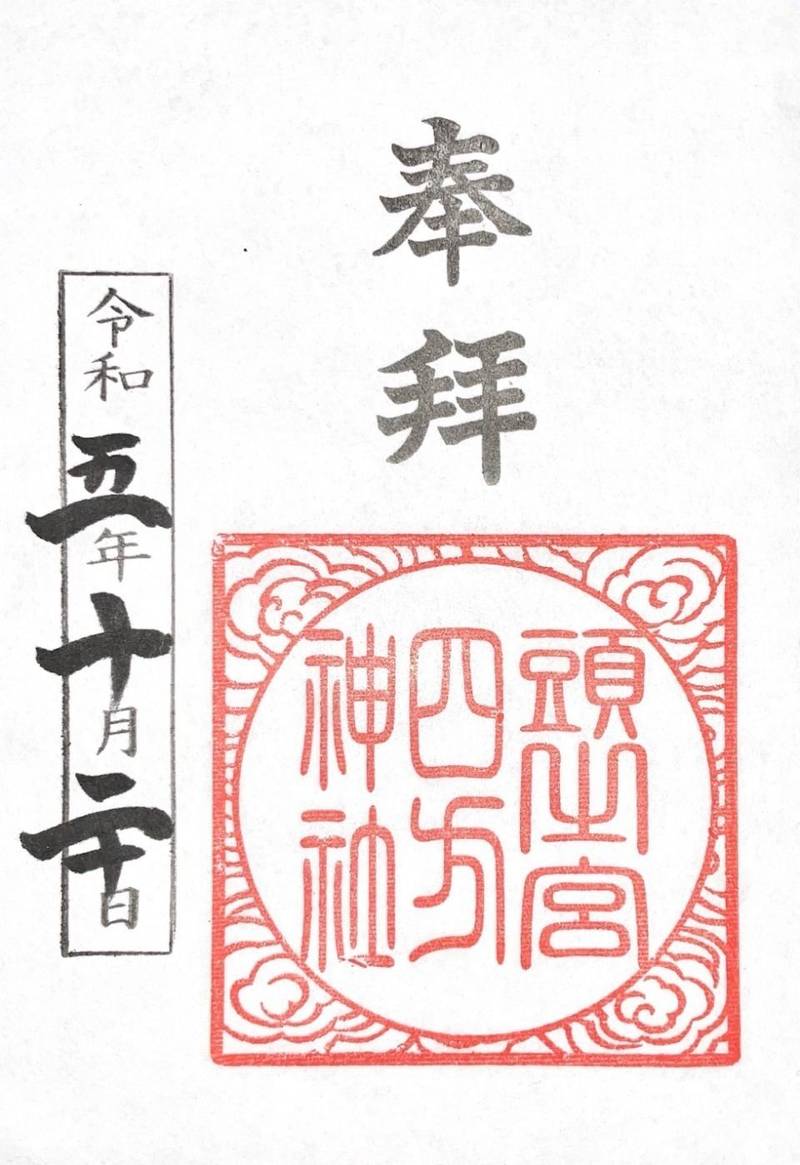 奉拝
頭之宮
四方
神社
令和五年十月二十日